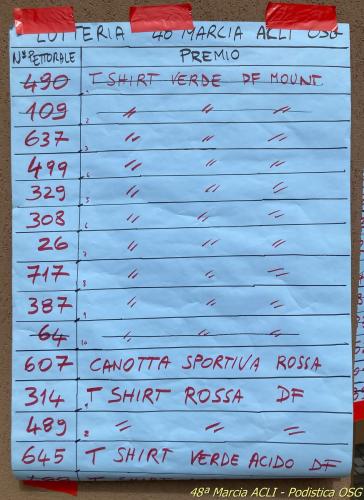 LOTTERIA 40 MARCIA ACLI OSG
N° PETTORALE PREMIO
490 T SHIRT VERDE DF MOUNT
109 2 〃 〃 〃
637 3 〃 〃 〃
499 4 〃 〃 〃
329 5 〃 〃 〃
308 6 〃 〃 〃
26 7 〃 〃 〃
717 8 〃 〃 〃
387 9 〃 〃 〃
64 10 〃 〃 〃
607 CANOTTA SPORTIVA ROSSA
314 1 T SHIRT ROSSA DF
489 2 〃 〃 〃
645 T SHIRT VERDE ACIDO DF
48ª Marcia ACLI - Podistica OSG